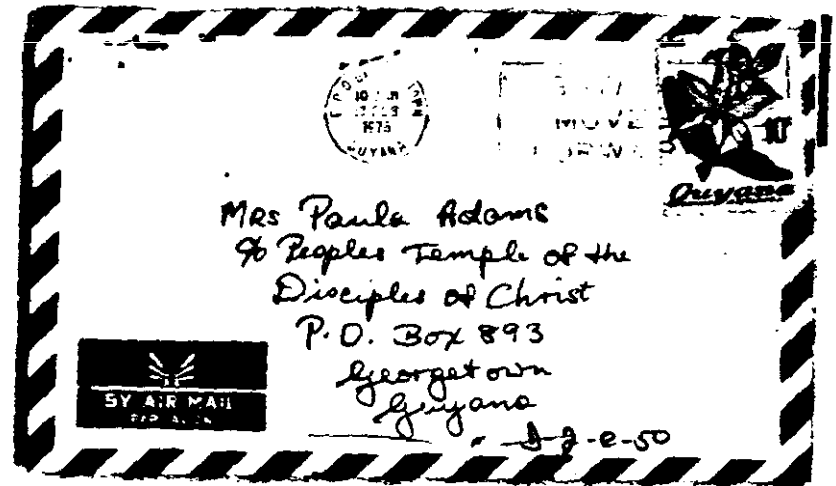 GUYANA
MOVE
10
Guyana
Mrs Paula Adams
c/o Peoples Temple of the
Disciples of Christ
P.O. Box 893
Georgetown
Guyana
BY AIR MAIL
PAR AVION